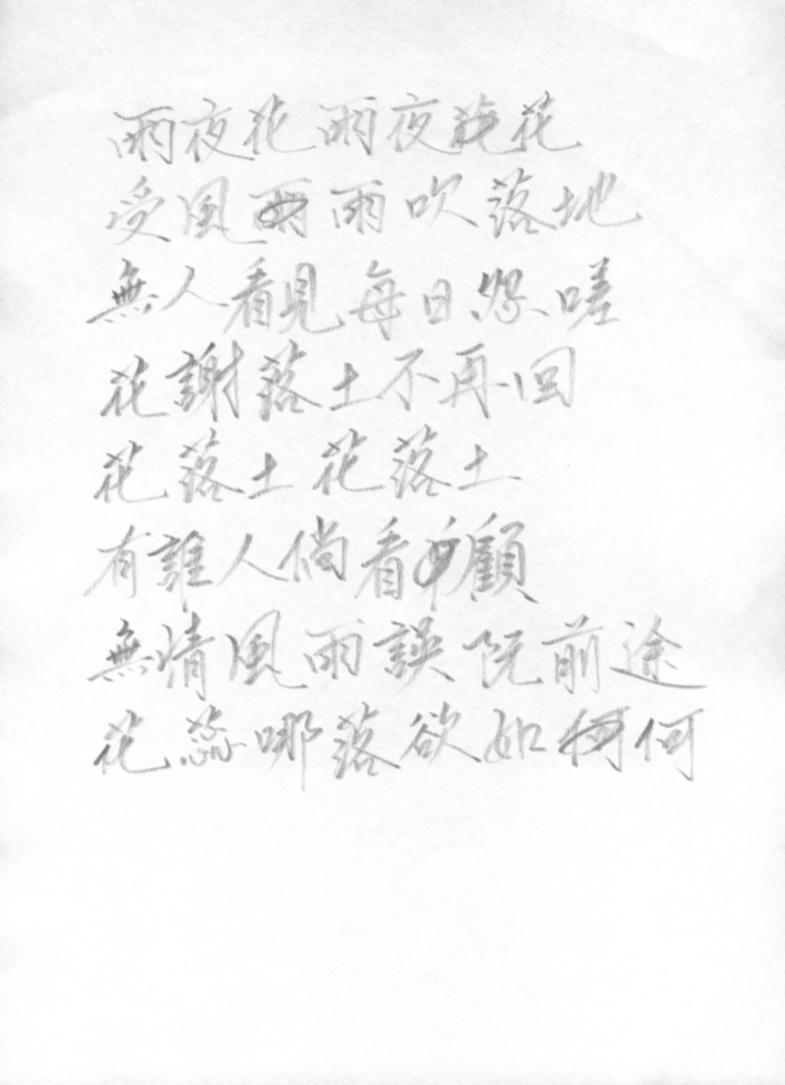 雨夜花雨夜花
受風雨吹落地
無人看見每日怨嗟
花謝落土不再回
花落土花落土
有誰人倘看顧
無情風雨誤阮前途
花蕊哪落欲如何